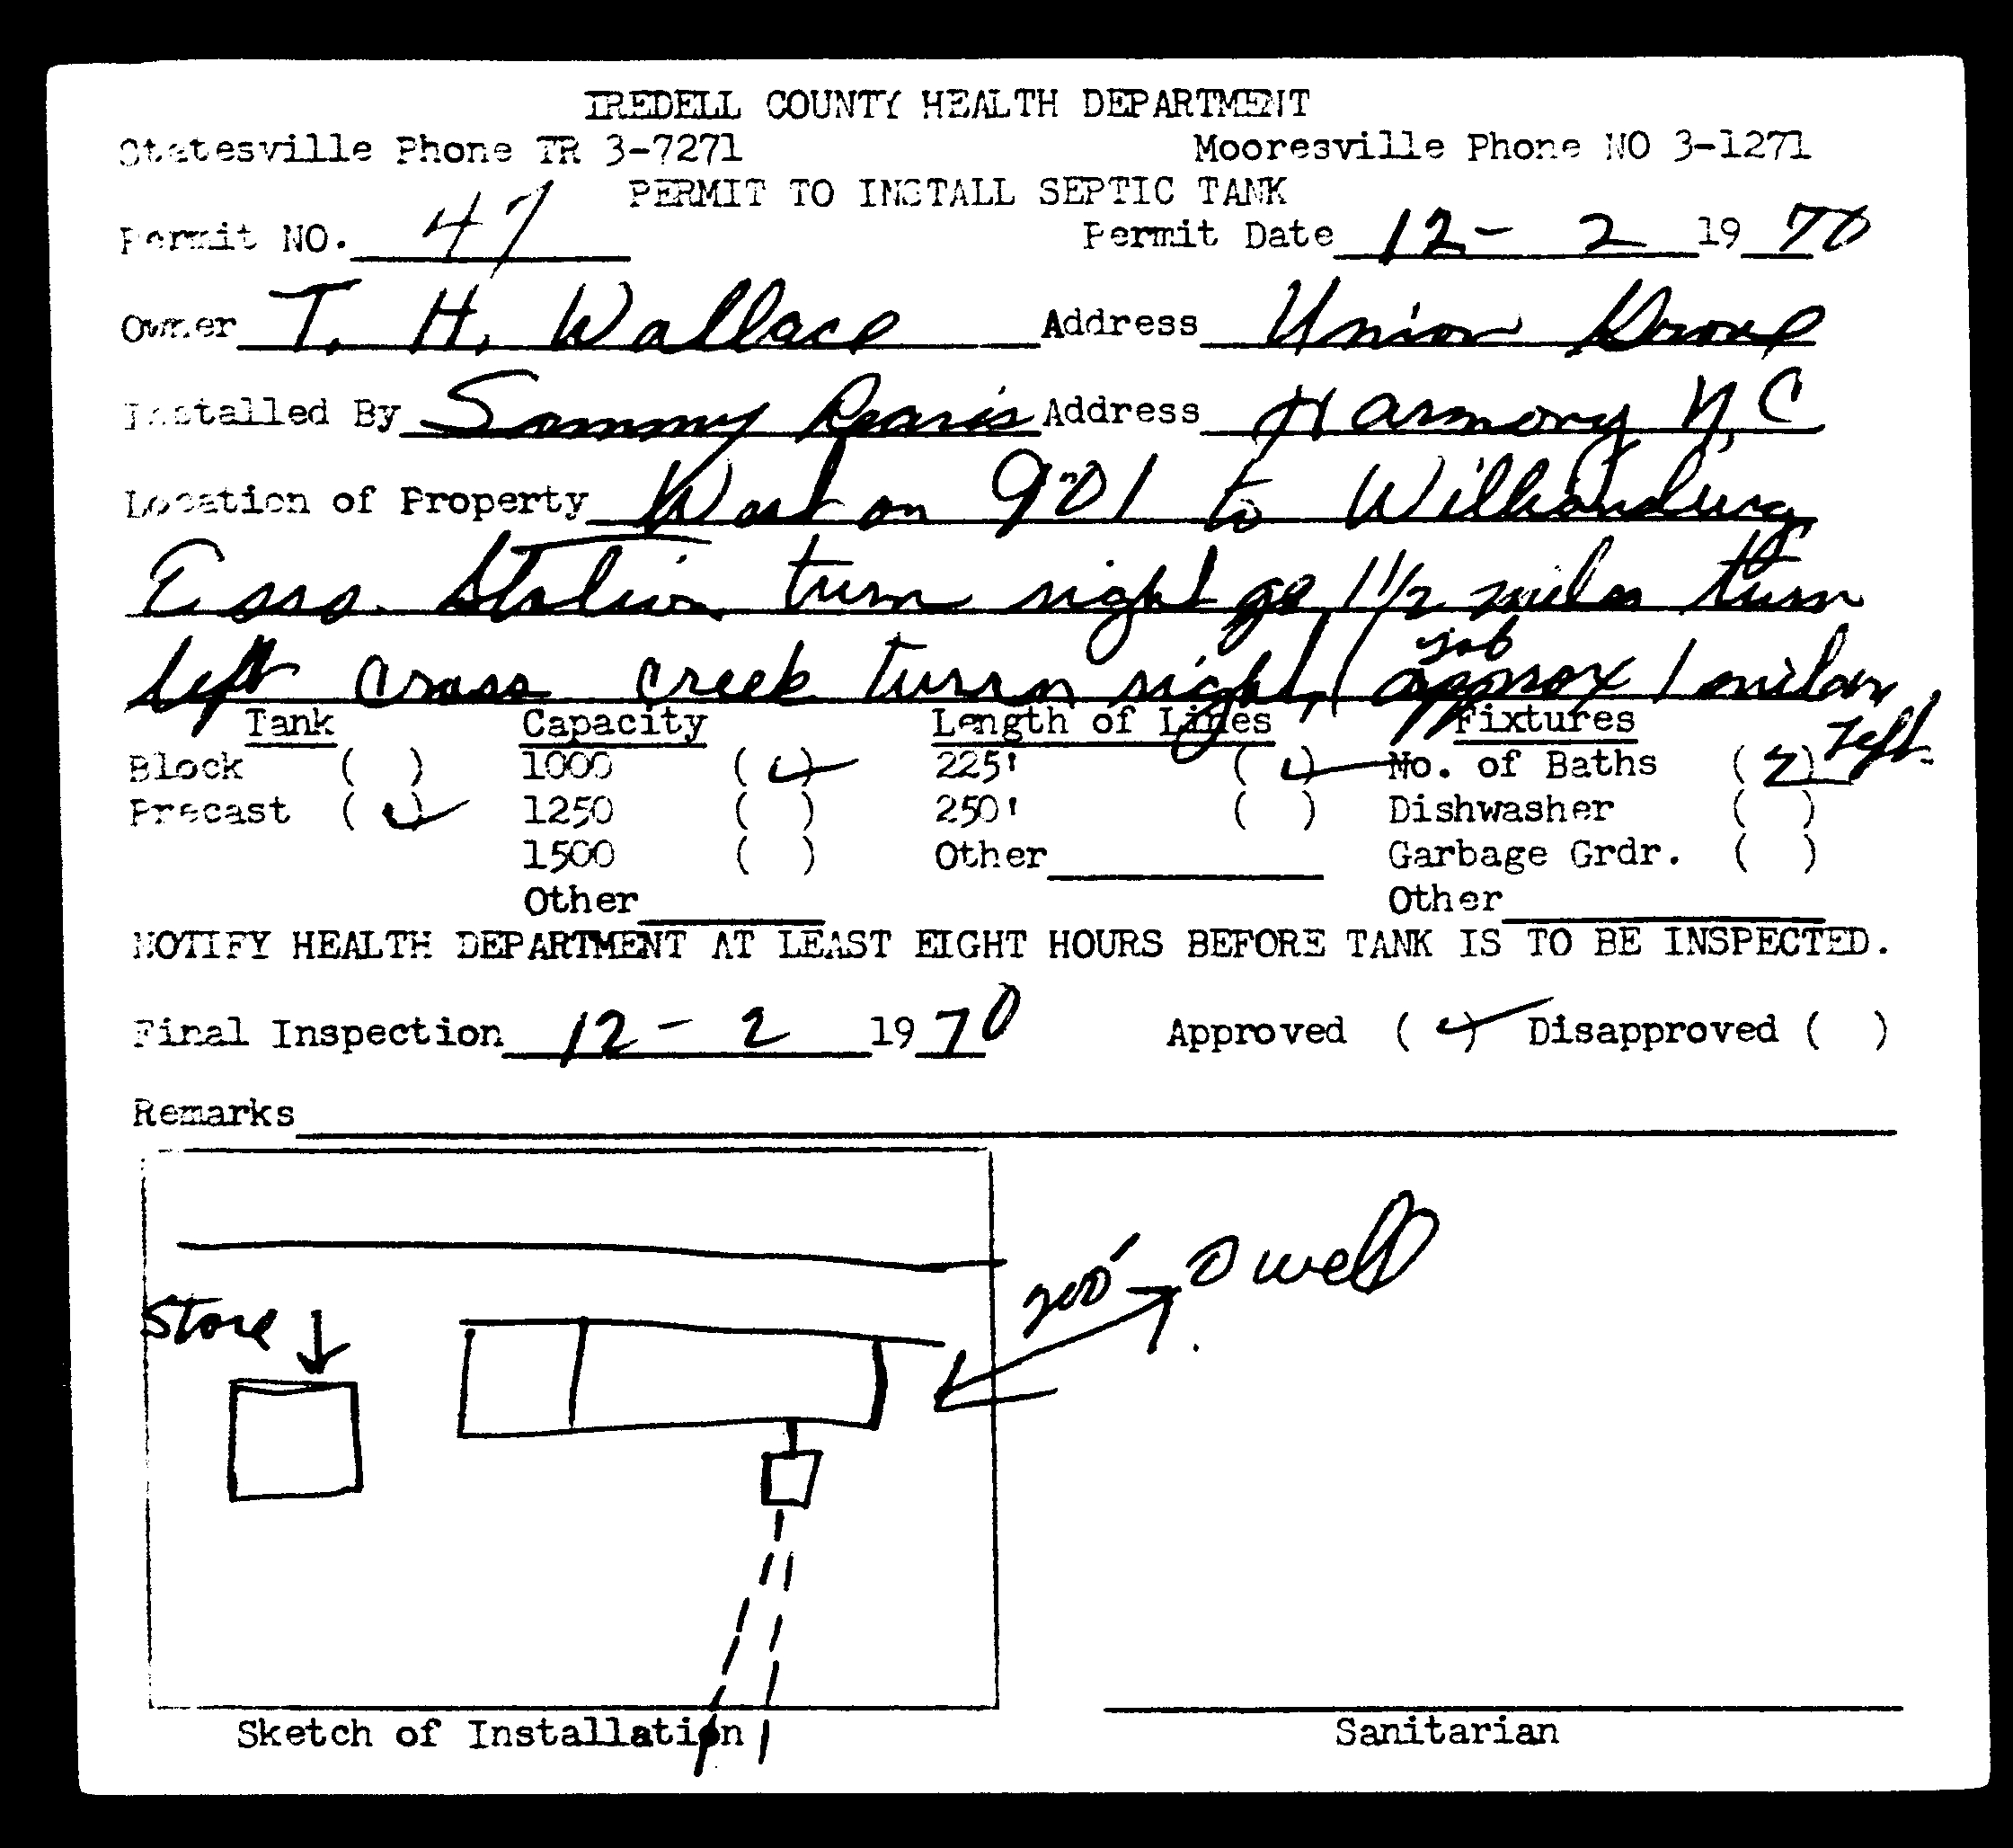 IREDELL COUNTY HEALTH DEPARTMENT
Statesville Phone TR 3-7271 Mooresville Phone NO 3-1271
PERMIT TO INSTALL SEPTIC TANK
Permit NO. 47 Permit Date 12-2 1970
Owner T. H. Wallace Address Union Grove
Installed By Sammy Address Harmony N.C
Location of Property West on 901 to Williamsburg
Esso Station turn right go 1 1/2 miles turn
left cross creek turn right, job approx 1 miles left
Tank Capacity Length of Lines Fixtures
Block ( ) 1000 (✓) 225' (✓) No. of Baths (2)
Precast (✓) 1250 ( ) 250' ( ) Dishwasher ( )
1500 ( ) Other Garbage Grdr. ( )
Other Other
NOTIFY HEALTH DEPARTMENT AT LEAST EIGHT HOURS BEFORE TANK IS TO BE INSPECTED.
Final Inspection 12-2 1970 Approved (✓) Disapproved ( )
Remarks
200' well
Store
Sketch of Installation Sanitarian